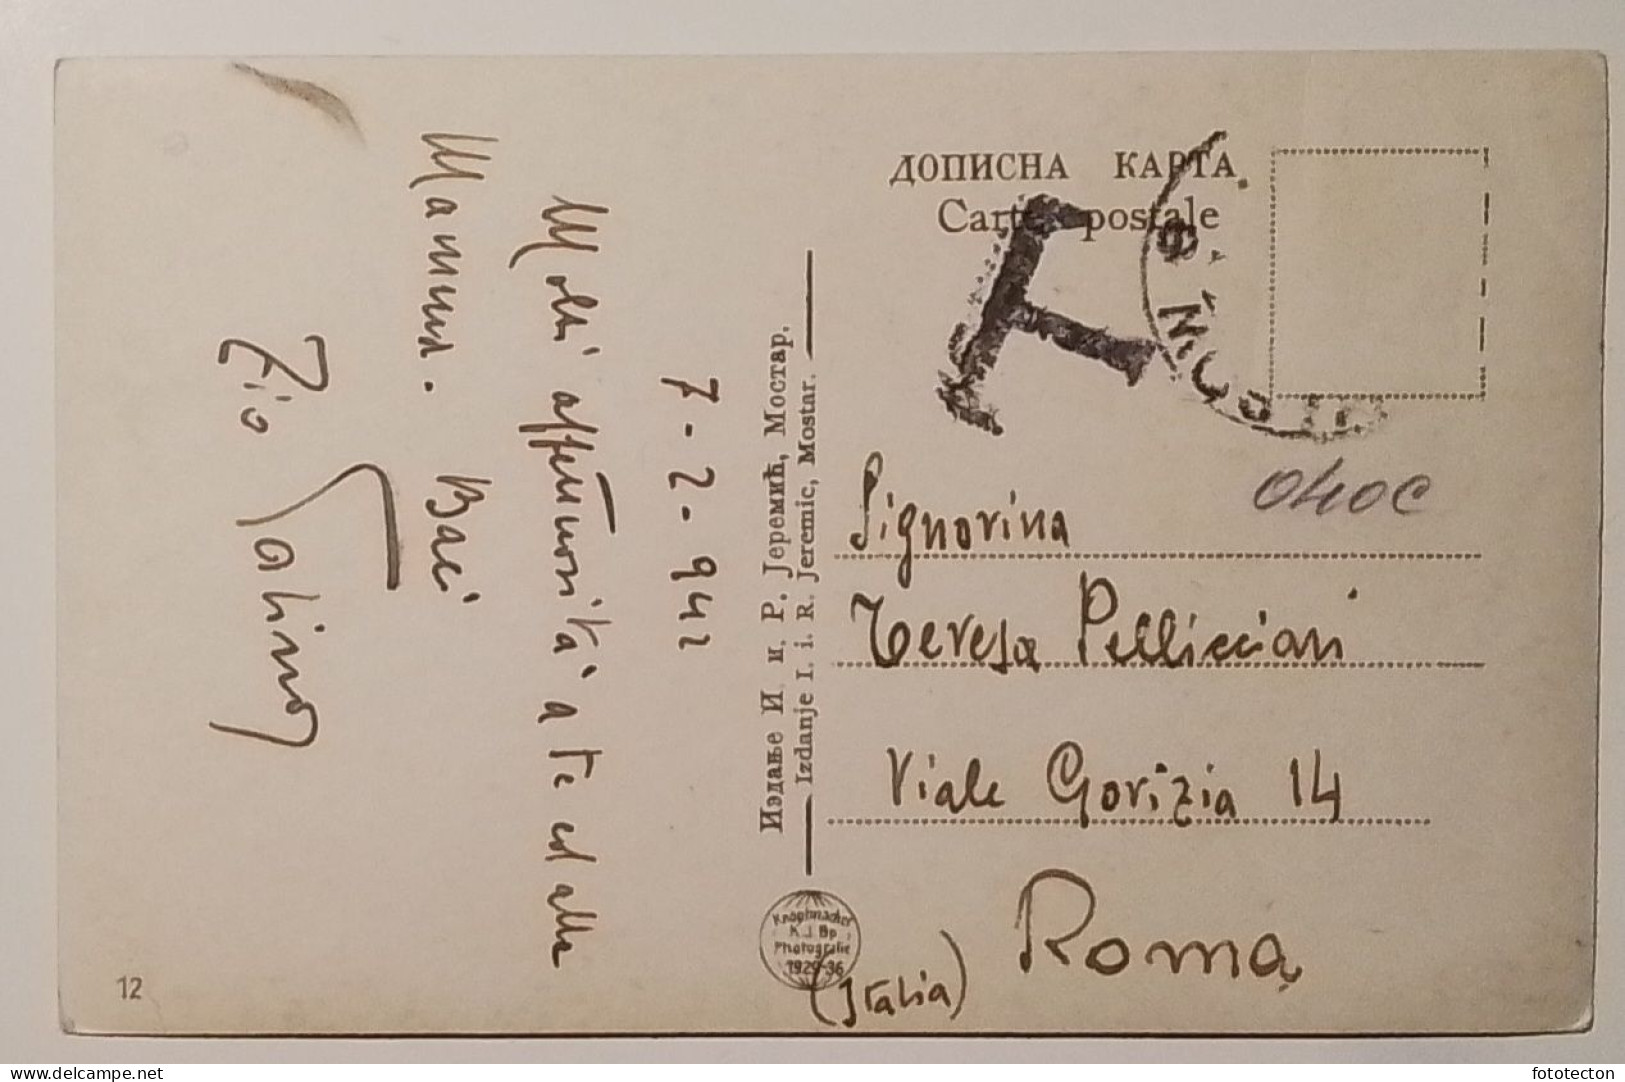 ДОПИСНА КАРТА
Carte postale
T
0400
7-2-942
Molti affettuosità a te ed alla
Mamma. Baci
Zio
Издање И. и Р. Јеремић, Мостар.
Izdanje I. i R. Jeremic, Mostar.
Signorina
Teresa Pellicciari
Viale Gorizia 14
Roma
(Italia)
Knopfmacher
K. J. Bp
Photografie
1929-36
12
delcampe.net
fototecton